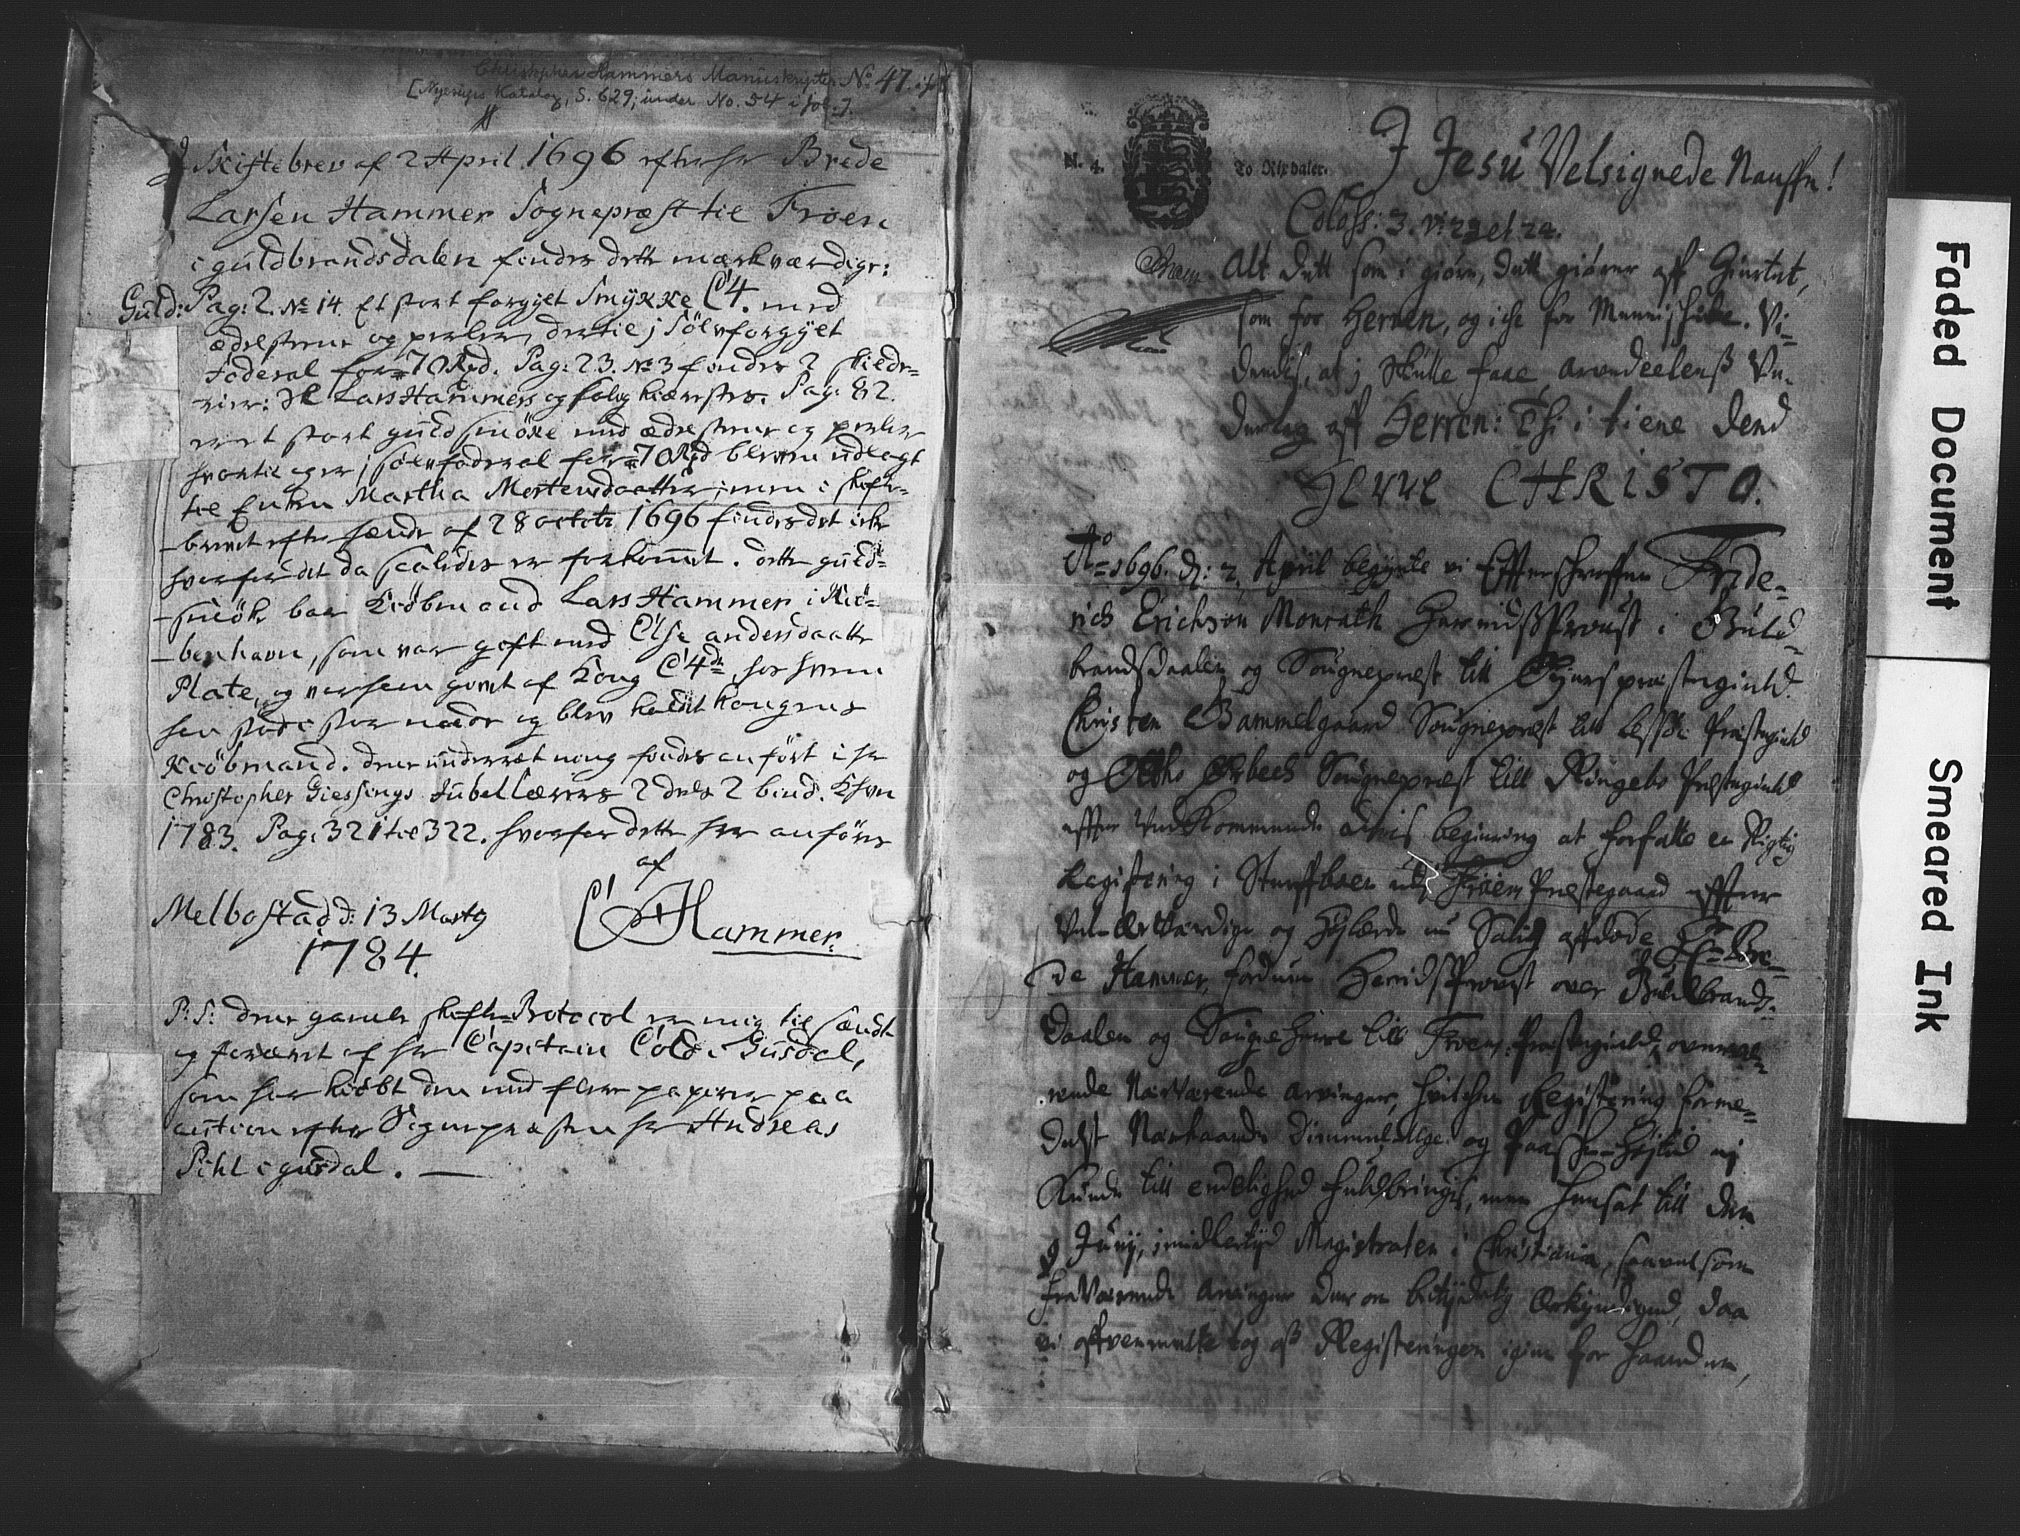 Christopher Hammers Manuskripter No. 47. i fol.
[Nyerups Katalog, S. 629; under No. 54 i fol.].
J Skiftebrev af 2 April 1696 efter hr Brede
Larsen Hammer Sognepræst til Froen
i guldbrandsdalen findes dette mærkværdige:
Guld: Pag: 2. No 14. Et stort forgyldt Smykke C4. med
ædelstene og perler, dertil j sölvforgyldt
foderal for 70 Rd. Pag: 23. No 3 findes 2 skilde-
rier: Sl Lars Hammers og salig kiærestes. Pag: 82.
er et stort guld smöke med ædelstene og perler
hvortil og er j sölvfoderal for 70 Rd bleven udlagt
til Enken Martha Mortensdaatter; men i skifte-
-brevet efter hende af 28 octobr 1696 findes det icke
hvorfor det da saaledes er forkommet. dette guld-
-smök bar Kiöbmand Lars Hammer i Kiö-
-benhavn, som var gift med Else andersdaatter
Plate, og var hem givet af Kong C4de, hos hvem
han stod i stor naade og blev kaldt Kongens
Kiöbmand. denne underretning findes anfört i hr
Christopher Giessings Jubel Lærere 2 deels 2 bind. Khvn
1783. Pag: 321 til 322. hvorfor dette her anföres
af
Melbostad d: 13 Marty
1784.
C Hammer.
P: S: denne gamle skifte-Protocol er mig til sændt
og foræret af hr Capitain Cold i Gusdal,
som har kiöbt den med flere papirer paa
auction efter Sognepræsten hr Andreas
Pihl i gusdal.
N. 4. To Rixdaler.
J Jesu Velsignede Nauffn!
Coloss: 3. v: 23 et 24.
Alt dett som i giøre, dett giører aff Hiertet,
som for Herren, og iche for Mennischene. Vi-
dendis, at j skulle faae arvedeelens Ve-
derlag aff Herren: Thi i tiene dend
Herre CHRISTO.
Ao 1696. d: 2. April begynte vi Efterschreffne Fride-
rich Erichsøn Monrath Herrids Proust i Guld-
brandsdaalen og Sougnepræst till Øyers præstegield
Christen Gammelgaard Sougnepræst till Lessøe Præstegield
og Otto Ørbech Sougnepræst till Ringeboe Præstegield
effter Vedkommende Arvis begiering at forfatte en Rigtig
Registering i Sterffboen udj Froens Præstegaard effter
Vel-ærværdige og Højlærde nu Salig affdøde Hr Bre-
de Hammer, fordum Herrids Proust over Guldbrands-
daalen og Sougne Herre till Froens Præstegield, overvæ-
rende Nærværende arvinger, hvilchen Registering forme-
delst Nærhaande Dimmelugge og Paasche-Højtid ej
Kunde till endelighed fuldbringis, men henset till den
9 Junij, imidlertijd Magistraten i Christiania, saavelsom
fraværende arvinger der om betijdelig Erkyndiged, daa
vi oftbenevnte tog os Registeringen igien for haanden,
Faded Document
Smeared Ink